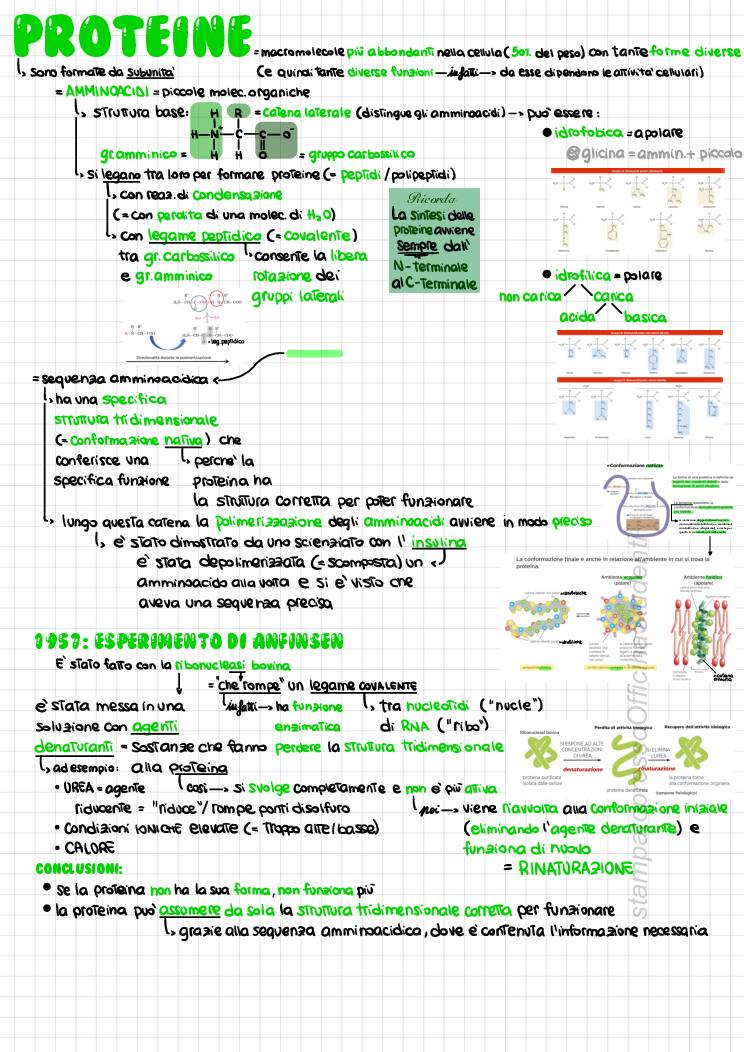 PROTEINE = macromolecole più abbondanti nella cellula (50% del peso) con tante forme diverse
↳ sono formate da subunita' (e quindi tante diverse funzioni — infatti → da esse dipendono le attivita' cellulari)
= AMMINOACIDI = piccole molec. organiche
↳ struttura base: = catena laterale (distingue gli amminoacidi) → può essere:
H R
H — N⁺ — C — C — O⁻
H H O
gr. amminico = = gruppo carbossilico
• idrofobica = apolare
glicina = ammin. + piccolo
↳ si legano tra loro per formare proteine (= peptidi / polipeptidi)
↳ con reaz. di condensazione
(= con perdita di una molec. di H₂O)
↳ con legame peptidico (= covalente)
tra gr. carbossilico ↳ consente la libera
e gr. amminico rotazione dei
gruppi laterali
Ricorda
La sintesi delle
proteine avviene
sempre dall'
N-Terminale
al C-Terminale
• idrofilica = polare
non carica carica
acida basica
leg. peptidico
Direzionalità durante la polimerizzazione
= sequenza amminoacidica
↳ ha una specifica
struttura tridimensionale
(= conformazione nativa) che
conferisce una ↳ perche' la
specifica funzione proteina ha
la struttura corretta per poter funzionare
↳ lungo questa catena la polimerizzazione degli amminoacidi avviene in modo preciso
↳ e' stato dimostrato da uno scienziato con l' insulina
e' stata depolimerizzata (= scomposta) un
amminoacido alla volta e si e' visto che
aveva una sequenza precisa
«Conformazione nativa»
La conformazione finale è anche in relazione all'ambiente in cui si trova la
proteina.
Ambiente acquoso
(polare)
Ambiente lipidico
(apolare)
1957: ESPERIMENTO DI ANFINSEN
E' stato fatto con la ribonucleasi bovina
= "che rompe" un legame COVALENTE
e' stata messa in una infatti → ha funzione ↳ tra nucleotidi ("nucle")
soluzione con agenti enzimatica di RNA ("ribo")
denaturanti = sostanze che fanno perdere la struttura tridimensionale
↳ ad esempio: alla proteina
• UREA = agente così → si svolge completamente e non e' più attiva
riducente = "riduce"/rompe ponti disolfuro poi → viene riavvolta alla conformazione iniziale
• Condizioni IONICHE elevate (= troppo alte/basse) (eliminando l'agente denaturante) e
• CALORE funziona di nuovo
= RINATURAZIONE
Ribonucleasi bovina
Perdita di attività biologica
Recupero dell'attività biologica
SI ESPONE AD ALTE
CONCENTRAZIONI
DI UREA
denaturazione
SI ELIMINA
L'UREA
rinaturazione
proteina purificata
isolata dalle cellule
proteina denaturata
la proteina torna
alla conformazione originaria
(tampone fisiologico)
CONCLUSIONI:
• se la proteina non ha la sua forma, non funziona più
• la proteina può assumere da sola la struttura tridimensionale corretta per funzionare
↳ grazie alla sequenza amminoacidica, dove e' contenuta l'informazione necessaria